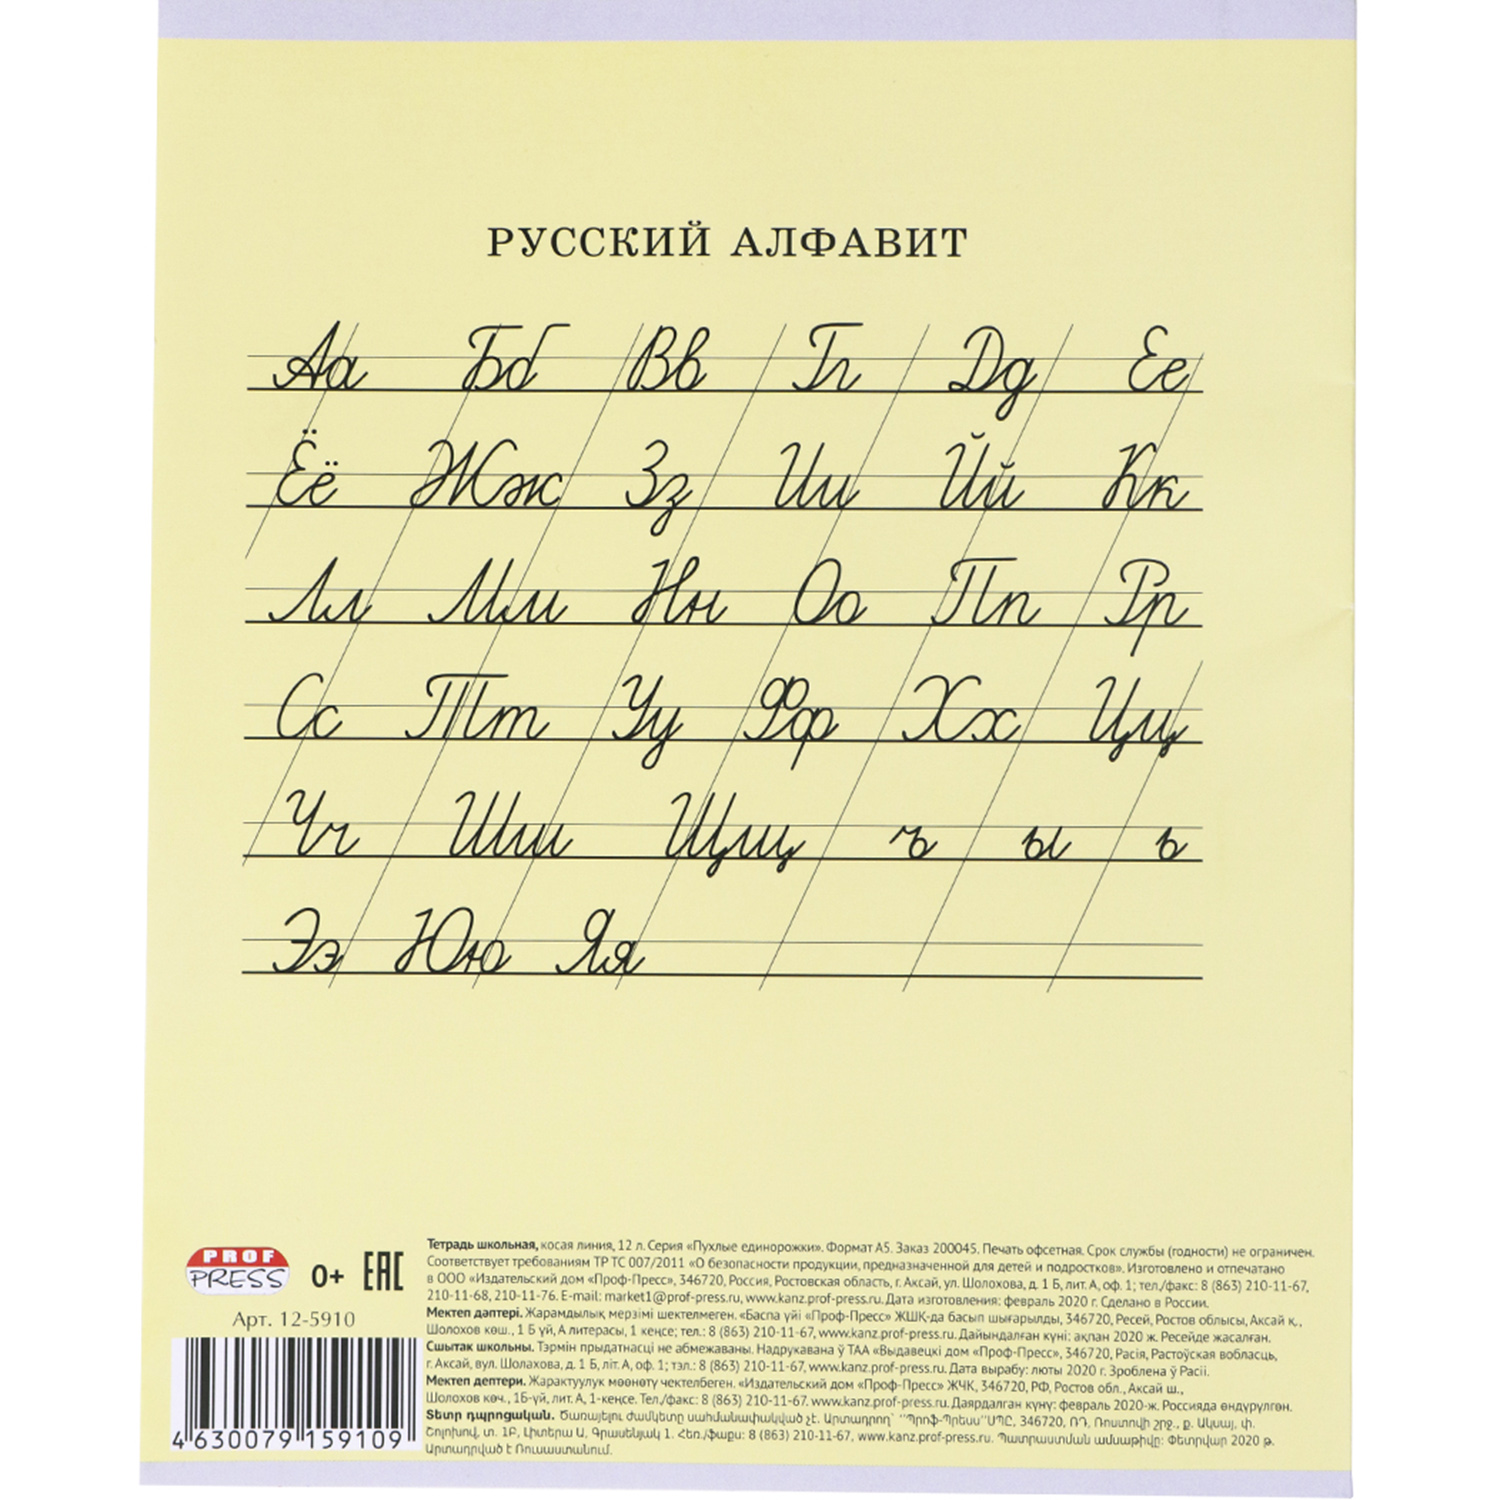 РУССКИЙ АЛФАВИТ
Аа Бб Вв Гг Дд Ее
Ёё Жж Зз Ии Йй Кк
Лл Мм Нн Оо Пп Рр
Сс Тт Уу Фф Хх Цц
Чч Шш Щщ ъ ы ь
Ээ Юю Яя
PROF
PRESS
0+ EAC
Арт. 12-5910
4 630079 159109
Тетрадь школьная, косая линия, 12 л. Серия «Пухлые единорожки». Формат А5. Заказ 200045. Печать офсетная. Срок службы (годности) не ограничен.
Соответствует требованиям ТР ТС 007/2011 «О безопасности продукции, предназначенной для детей и подростков». Изготовлено и отпечатано
в ООО «Издательский дом «Проф-Пресс», 346720, Россия, Ростовская область, г. Аксай, ул. Шолохова, д. 1 Б, лит. А, оф. 1; тел./факс: 8 (863) 210-11-67,
210-11-68, 210-11-76. E-mail: market1@prof-press.ru, www.kanz.prof-press.ru. Дата изготовления: февраль 2020 г. Сделано в России.
Мектеп дәптері. Жарамдылық мерзімі шектелмеген. «Баспа үйі «Проф-Пресс» ЖШҚ-да басып шығарылды, 346720, Ресей, Ростов облысы, Аксай қ.,
Шолохов көш., 1 Б үй, А литерасы, 1 кеңсе; тел.: 8 (863) 210-11-67, www.kanz.prof-press.ru. Дайындалған күні: ақпан 2020 ж. Ресейде жасалған.
Сшытак школьны. Тэрмін прыдатнасці не абмежаваны. Надрукавана ў ТАА «Выдавецкі дом «Проф-Пресс», 346720, Расія, Растоўская вобласць,
г. Аксай, вул. Шолахова, д. 1 Б, літ. А, оф. 1; тэл.: 8 (863) 210-11-67, www.kanz.prof-press.ru. Дата вырабу: люты 2020 г. Зроблена ў Расіі.
Мектеп дептери. Жарактуулук мөөнөтү чектелбеген. «Издательский дом «Проф-Пресс» ЖЧК, 346720, РФ, Ростов обл., Аксай ш.,
Шолохов көч., 1б-үй, лит. А, 1-кеңсе. Тел./факс: 8 (863) 210-11-67. www.kanz.prof-press.ru. Даярдалган күнү: февраль 2020-ж. Россияда өндүрүлгөн.
Տետր դպրոցական. Ծառայելու ժամկետը սահմանափակված չէ. Արտադրող՝ ''Պրոֆ-Պրեսս''ՍՊԸ, 346720, ՌԴ, Ռոստովի շրջ., ք. Ակսայ, փ.
Շոլոխով, տ. 1Բ, Լիտերա Ա, Գրասենյակ 1. Հեռ./ֆաքս: 8 (863) 210-11-67, www.kanz.prof-press.ru. Պատրաստման ամսաթիվը: Փետրվար 2020 թ.
Արտադրված է Ռուսաստանում.